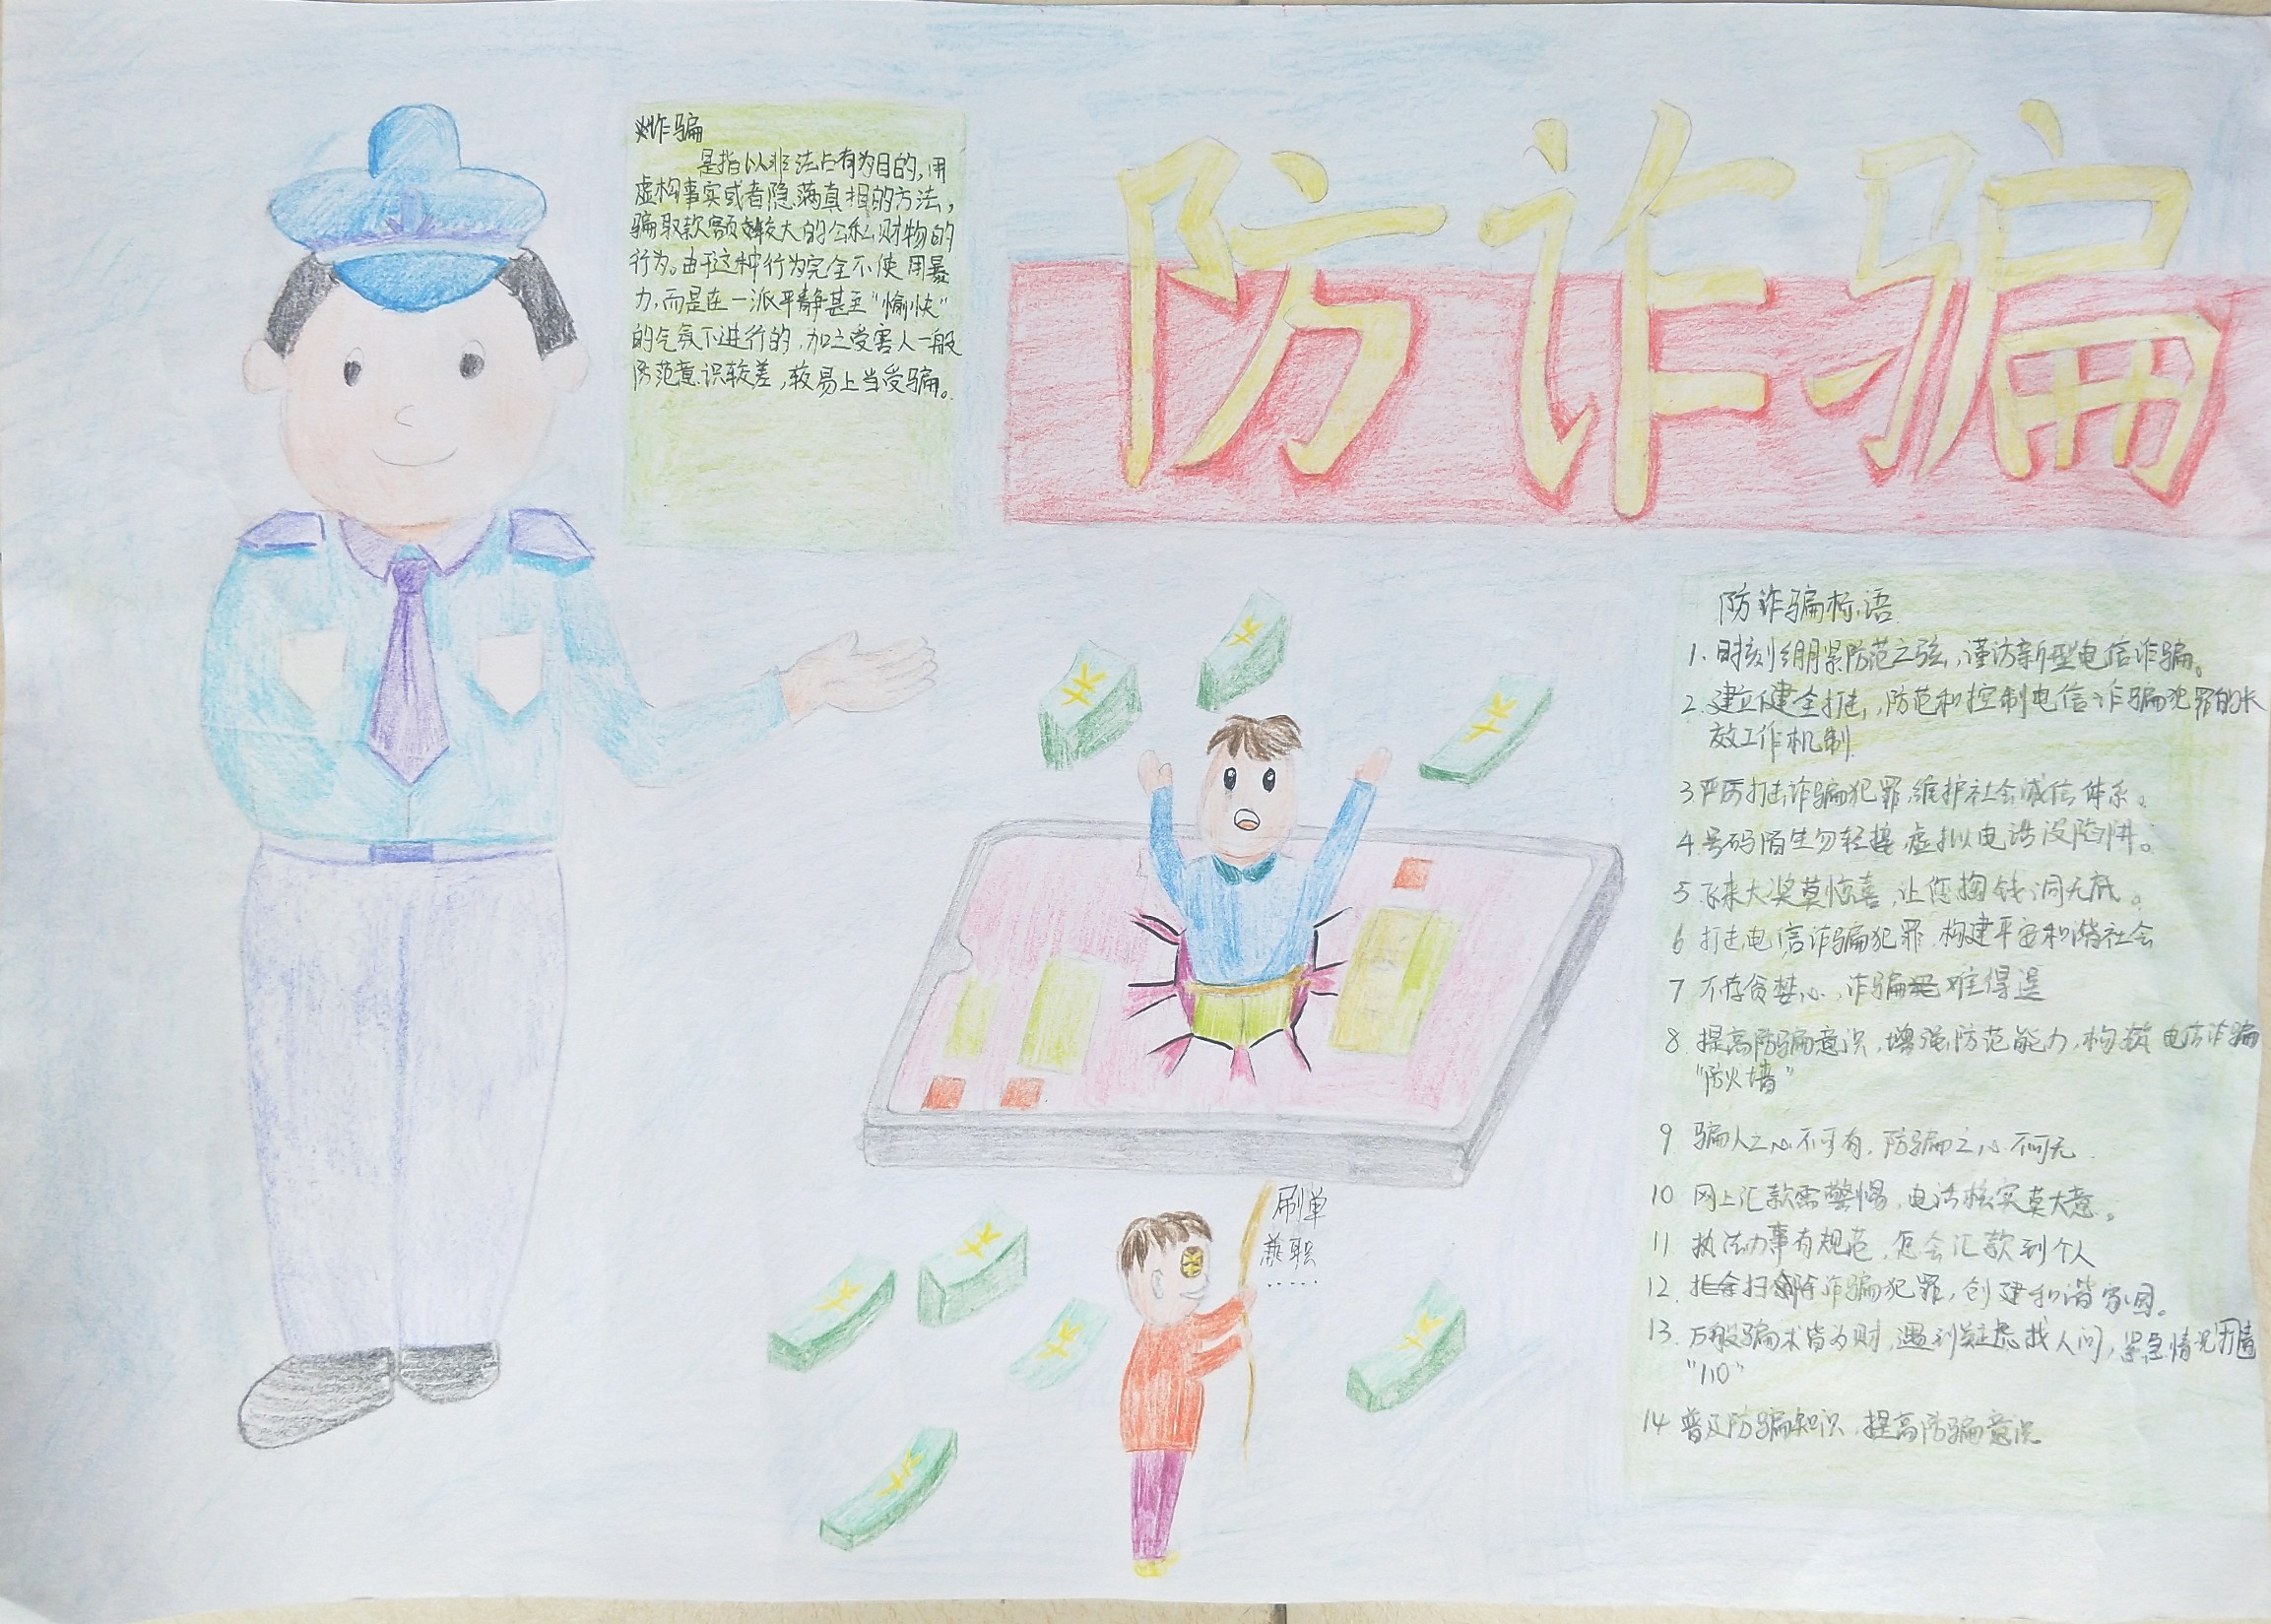 防诈骗
诈骗
是指以非法占有为目的,用
虚构事实或者隐满真相的方法,
骗取款额较大的公私财物的
行为。由于这种行为完全不使用暴
力,而是在一派平静甚至“愉快”
的气氛下进行的,加之受害人一般
防范意识较差,较易上当受骗。
防诈骗标语
1.时刻绷紧防范之弦,谨访新型电信诈骗。
2.建立健全打击,防范和控制电信诈骗犯罪的长
效工作机制
3.严厉打击诈骗犯罪,维护社会诚信体系。
4.号码陌生勿轻接,虚拟电话设陷阱。
5飞来大奖莫惊喜,让您掏钱洞无底。
6打击电信诈骗犯罪,构建平安和谐社会
7不存贪婪心,诈骗难得逞
8提高防骗意识,增强防范能力,构筑电信诈骗
“防火墙”
9骗人之心不可有,防骗之心不可无.
10网上汇款需警惕,电话核实莫大意。
11执法办事有规范,怎会汇款到个人
12.扫除诈骗犯罪,创建和谐家园。
13.万般骗术皆为财,遇到疑虑找人问,紧急情况打
“110”
14普及防骗知识,提高防骗意识
刷单
兼职
......
¥
¥
¥
¥
¥
¥
¥
¥